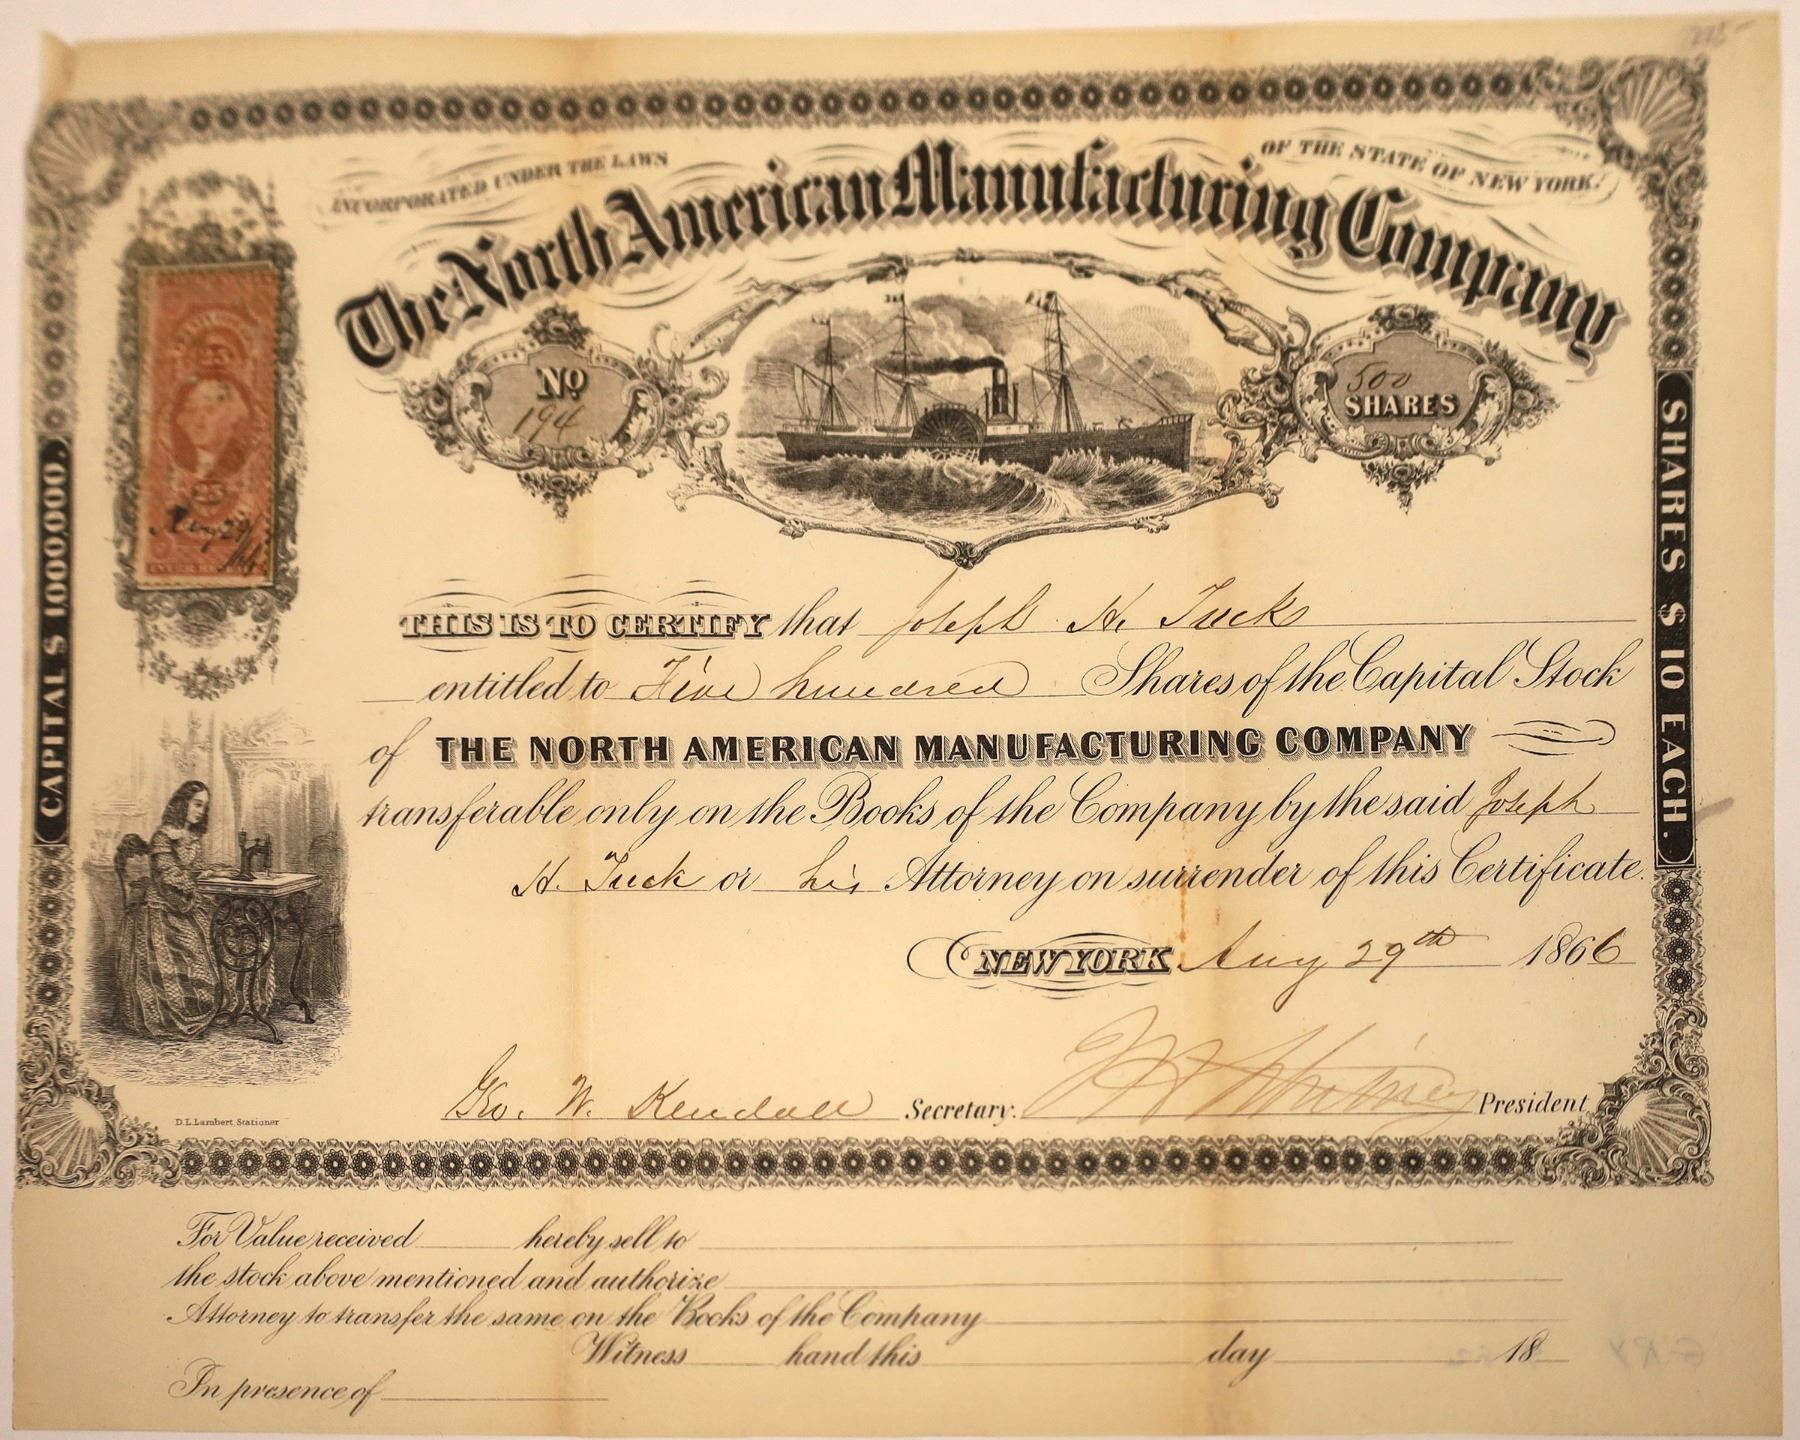 INCORPORATED UNDER THE LAWS OF THE STATE OF NEW YORK.
The North American Manufacturing Company
No 194
500 SHARES
25
25
Aug 29/66
CAPITAL $ 1000,000.
SHARES $ 10 EACH.
THIS IS TO CERTIFY that Joseph H. Tuck
entitled to Five hundred Shares of the Capital Stock
of THE NORTH AMERICAN MANUFACTURING COMPANY
transferable only on the Books of the Company by the said Joseph
H. Tuck or his Attorney on surrender of this Certificate.
NEW YORK Aug 29th 1866
Geo. W. Kendall Secretary. Whitney President
D.L.Lambert, Stationer
For Value received hereby sell to
the stock above mentioned and authorize
Attorney to transfer the same on the Books of the Company
Witness hand this day 18
In presence of